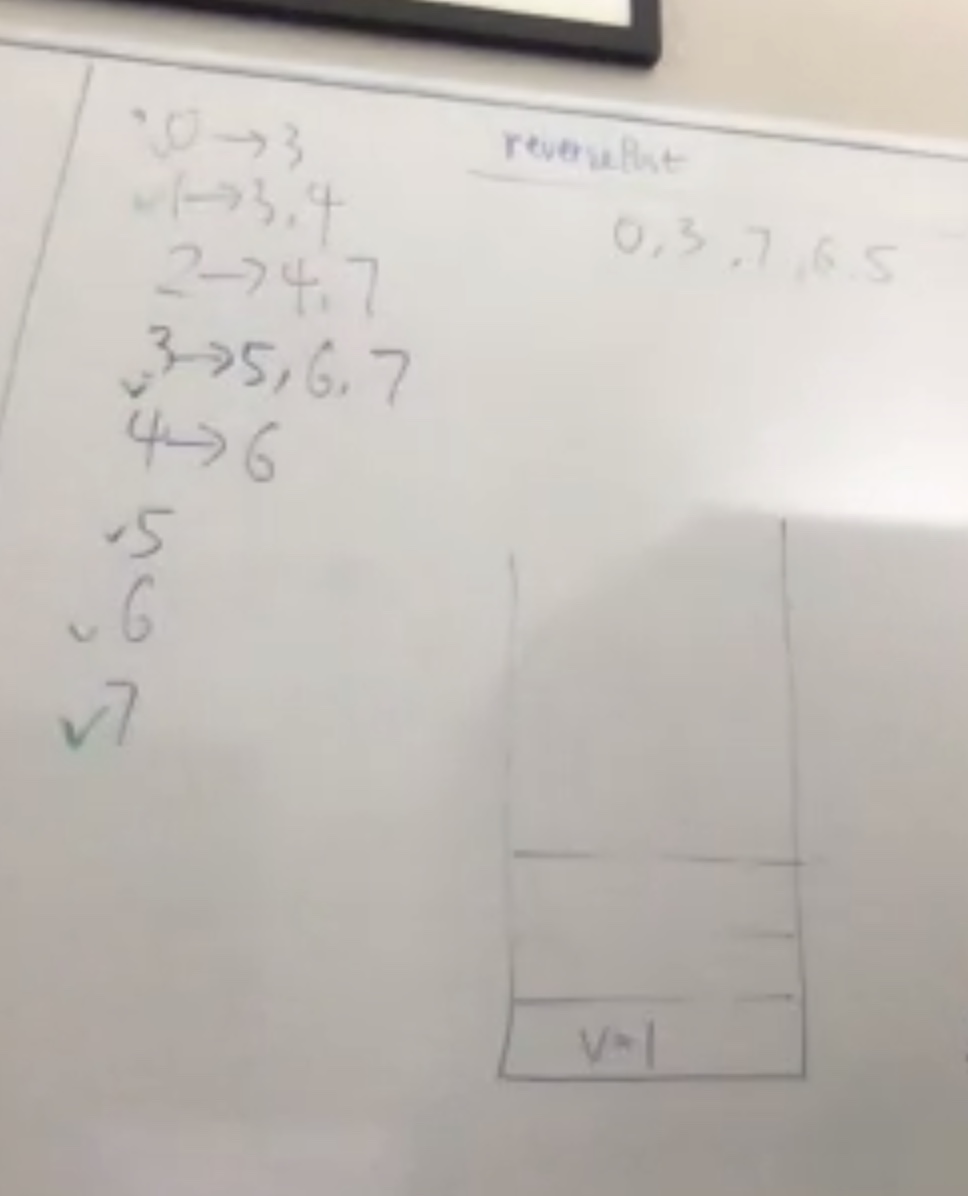 0→3
✓1→3,4
2→4,7
✓3→5,6,7
4→6
✓5
✓6
✓7
reversePost
0,3,7,6,5
v=1